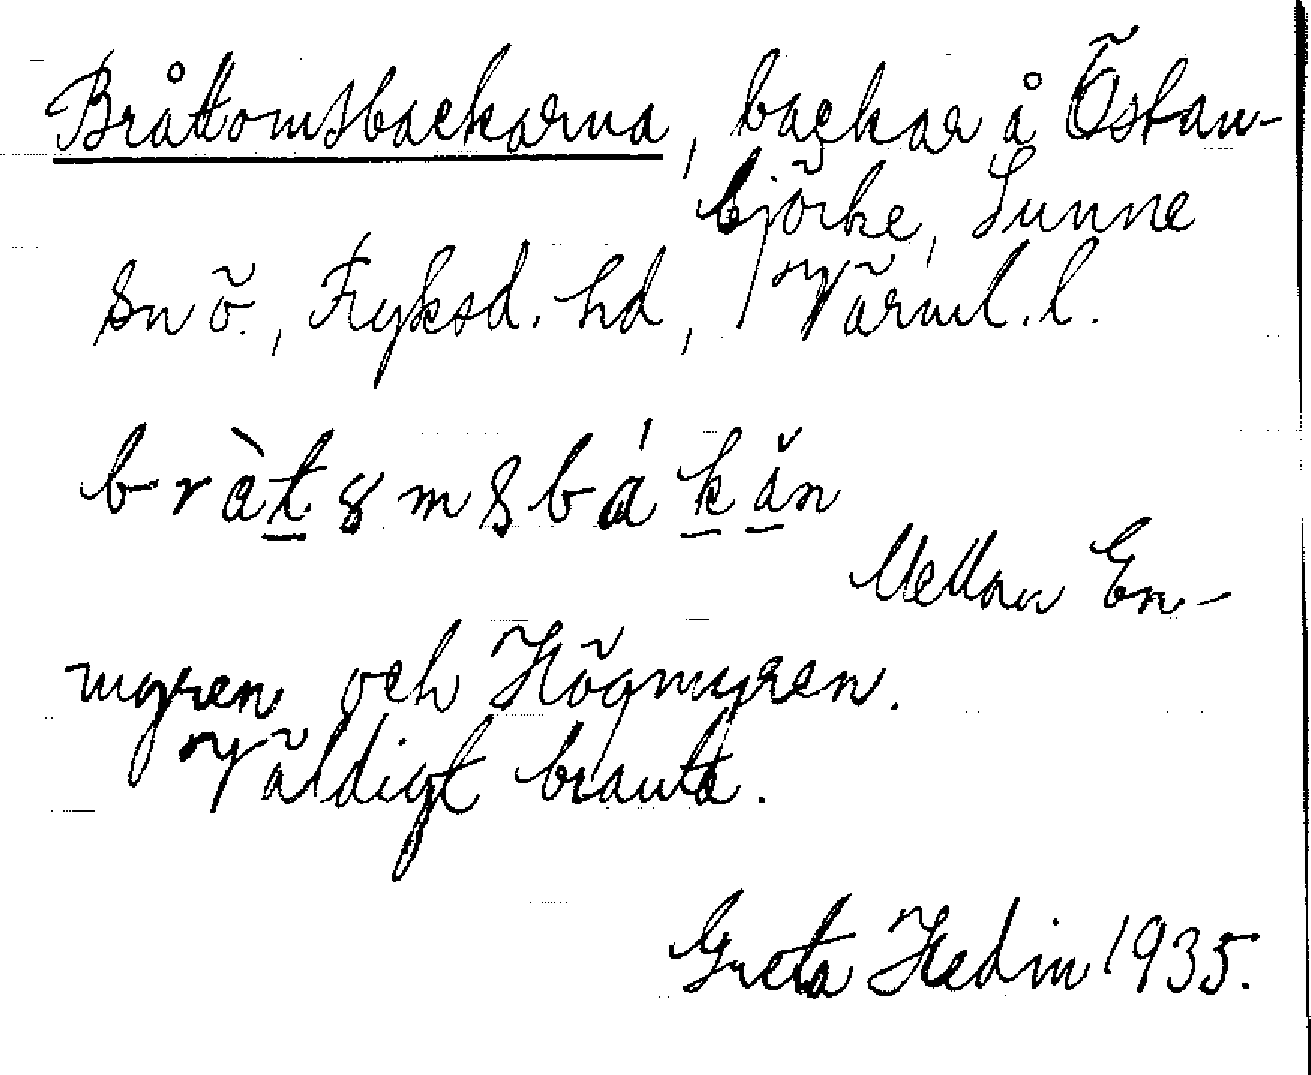 Bråttomsbackarna, backar å Östan-
björke, Sunne
sn ö., Fryksd. hd, Värml. l.
bràt̲ȣmsbák̲å̲n
Mellan En-
myren och Högmyren.
Väldigt branta.
Greta Hedin 1935.